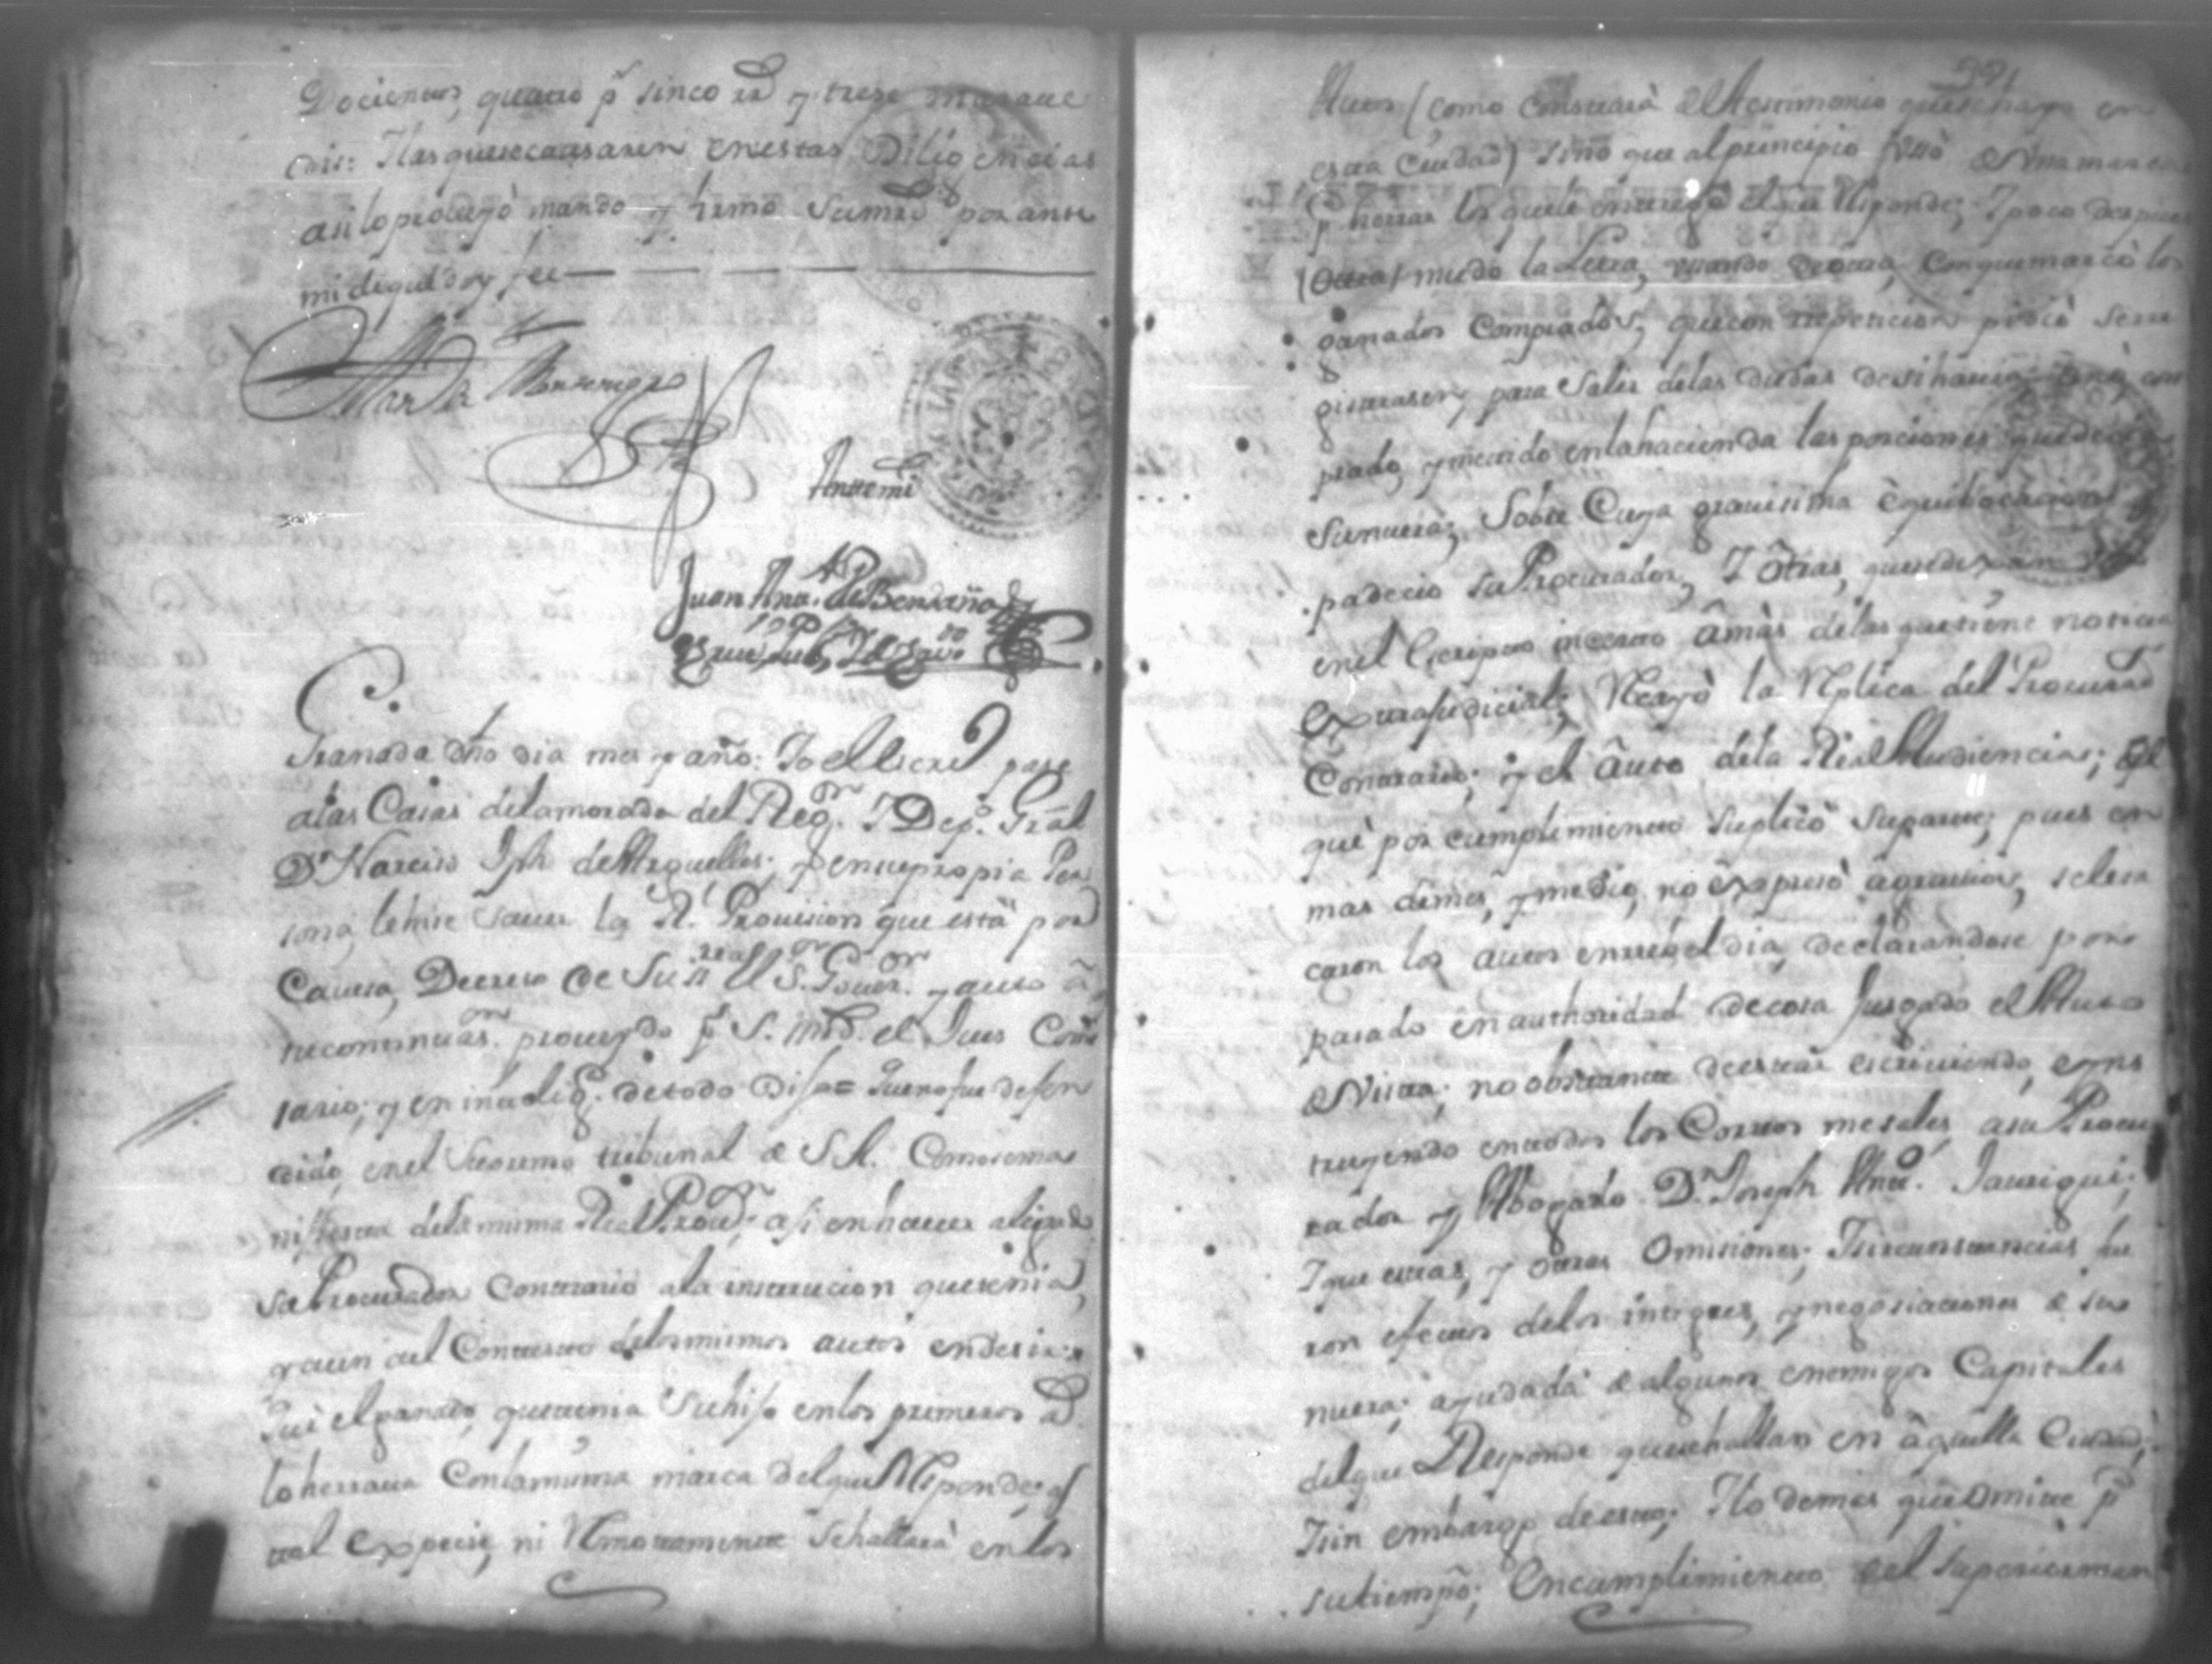 Docientos, quatro p.s sinco rr.s y trese marave
dis: Ylas quesecausaren enestas Diligencias
asilo proveyò mando y firmó Sumrd. por ante
mi dequé doy fee
Montenegro
Antemi
Juan Antt.o de Bendaña
esno pub.co
Granada dho dia mes y año: Yo el Escrno pase
alas Casas delamorada del Reg.or Y Dep.o Gral
D.n Narciso Jph de Arguelles; y ensupropia Per
sona, lehise saver la R.l Provision que està por
Cavesa, Decreto de Su el S. Gover.or y auto â
sucontinuas.on proveydo p.r S. mrd. el Jues Comi
sario; y en intelig.a detodo Dijo= Quenofue defen
dido, enel Supremo tribunal de S. A. Comosema
nifiesta dela misma Real Prov.on; asi enhaver alegado
su Procurador Contrario ala instrucion quetenia,
y aun del Contexto delosmismos autos endesir
Què elganado, quetenia Suhijo enlos primeros a.s
lo herrava Conlamisma marca delque Responde; q.
tal Exprese, ni Remotamente Sehallarà enlos
391
Autos (como Constarà del testimonio quesehaga en
esta Ciudad) sino que alprincipio usò de una marca
p.a herrar los quele entregó el que Responde; Y poco despues
(Otra) mudò la Letra, usando de otra, Conquemarcò los
ganados Comprados, quecon repeticion pidiò Sere
gistrasen, para Salir delas dudas desihavia com
prado, y metido enlahacienda las porciones quedecia
Sunuera; Sobre Cuya gravisima èquibocacion
padecio su Procurador, Y ôtras, quesedexan ver
enel Escripto incerto âmàs delas quetiene noticia
Extrajudicial; Recayò la Replica del Procurador
Contrario; y el âuto dela Real Audiencia; del
què por cumplimiento suplicò Suparte; pues en
mas demes, y medio, no expresò agravios, selesa
caron los autos enrebeldia, declarandose por
pasado en authoridad decosa Jusgado el Auto
de Vista; no obstante deestar escriviendo, e yns
truyendo entodos los Correos mesales, asu Procu
rador y Abogado D.n Joseph Antt.o Jauregui;
Y que estas, y otras Omisiones; Y sircunstancias fue
ron efectos delos intrigues, y negosiaciones de su
nuera; ayudada de algunos enemigos Capitales
delque Responde quesehallan en âquella Ciudad;
Y sin embargo deesto; Y lo demas que Omite p.a
sutiempo; Encumplimiento del Superiorman